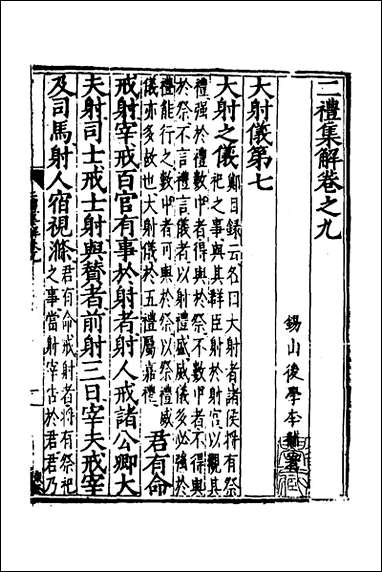 二禮集解卷之九
錫山後學李黼
大射儀第七
大射之儀鄭目録云名曰大射者諸侯將有祭
祀之事與其群臣射於射宮以觀其
禮强於禮數中者得與於祭不數中者不得與
於祭不言禮言儀者以射禮盛威儀多必强於
禮能行之數中者可與於祭以祭禮威
儀亦多故也大射儀於五禮屬嘉禮君有命
戒射宰戒百官有事於射者射人戒諸公卿大
夫射司士戒士射與賛者前射三日宰夫戒宰
及司馬射人宿視滌君有命戒射者將有祭祀
之事當射宰告於君君乃